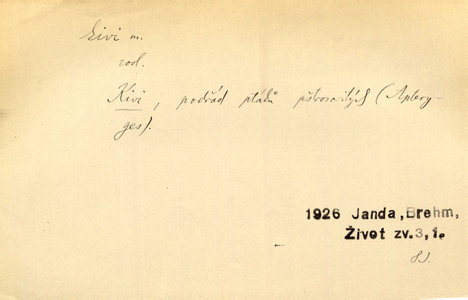 kivi m.
rod.
Kivi, podřád ptáků pštrosovitých (Aptery-
ges).
1926 Janda, Brehm,
Život zv.3,1.